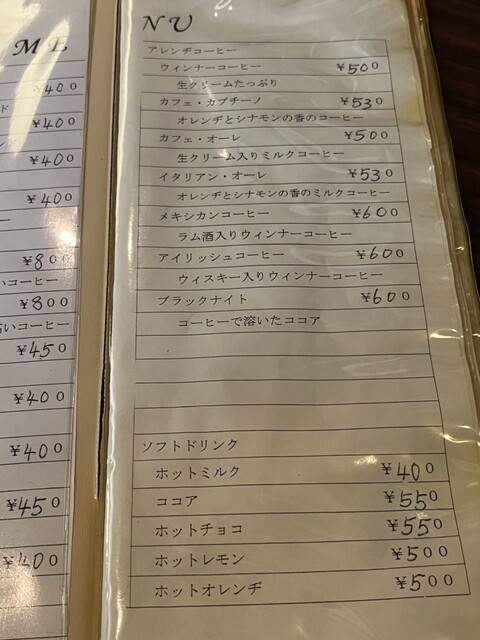 ME
¥400
ド
¥400
¥400
¥400
ー
¥800
いコーヒー
¥800
いコーヒー
¥450
¥400
¥400
¥450
¥400
NU
アレンヂコーヒー
ウィンナーコーヒー ¥500
生クリームたっぷり
カフェ・カプチーノ ¥530
オレンヂとシナモンの香のコーヒー
カフェ・オーレ ¥500
生クリーム入りミルクコーヒー
イタリアン・オーレ ¥530
オレンヂとシナモンの香のミルクコーヒー
メキシカンコーヒー ¥600
ラム酒入りウィンナーコーヒー
アイリッシュコーヒー ¥600
ウィスキー入りウィンナーコーヒー
ブラックナイト ¥600
コーヒーで溶いたココア
ソフトドリンク
ホットミルク ¥400
ココア ¥550
ホットチョコ ¥550
ホットレモン ¥500
ホットオレンヂ ¥500